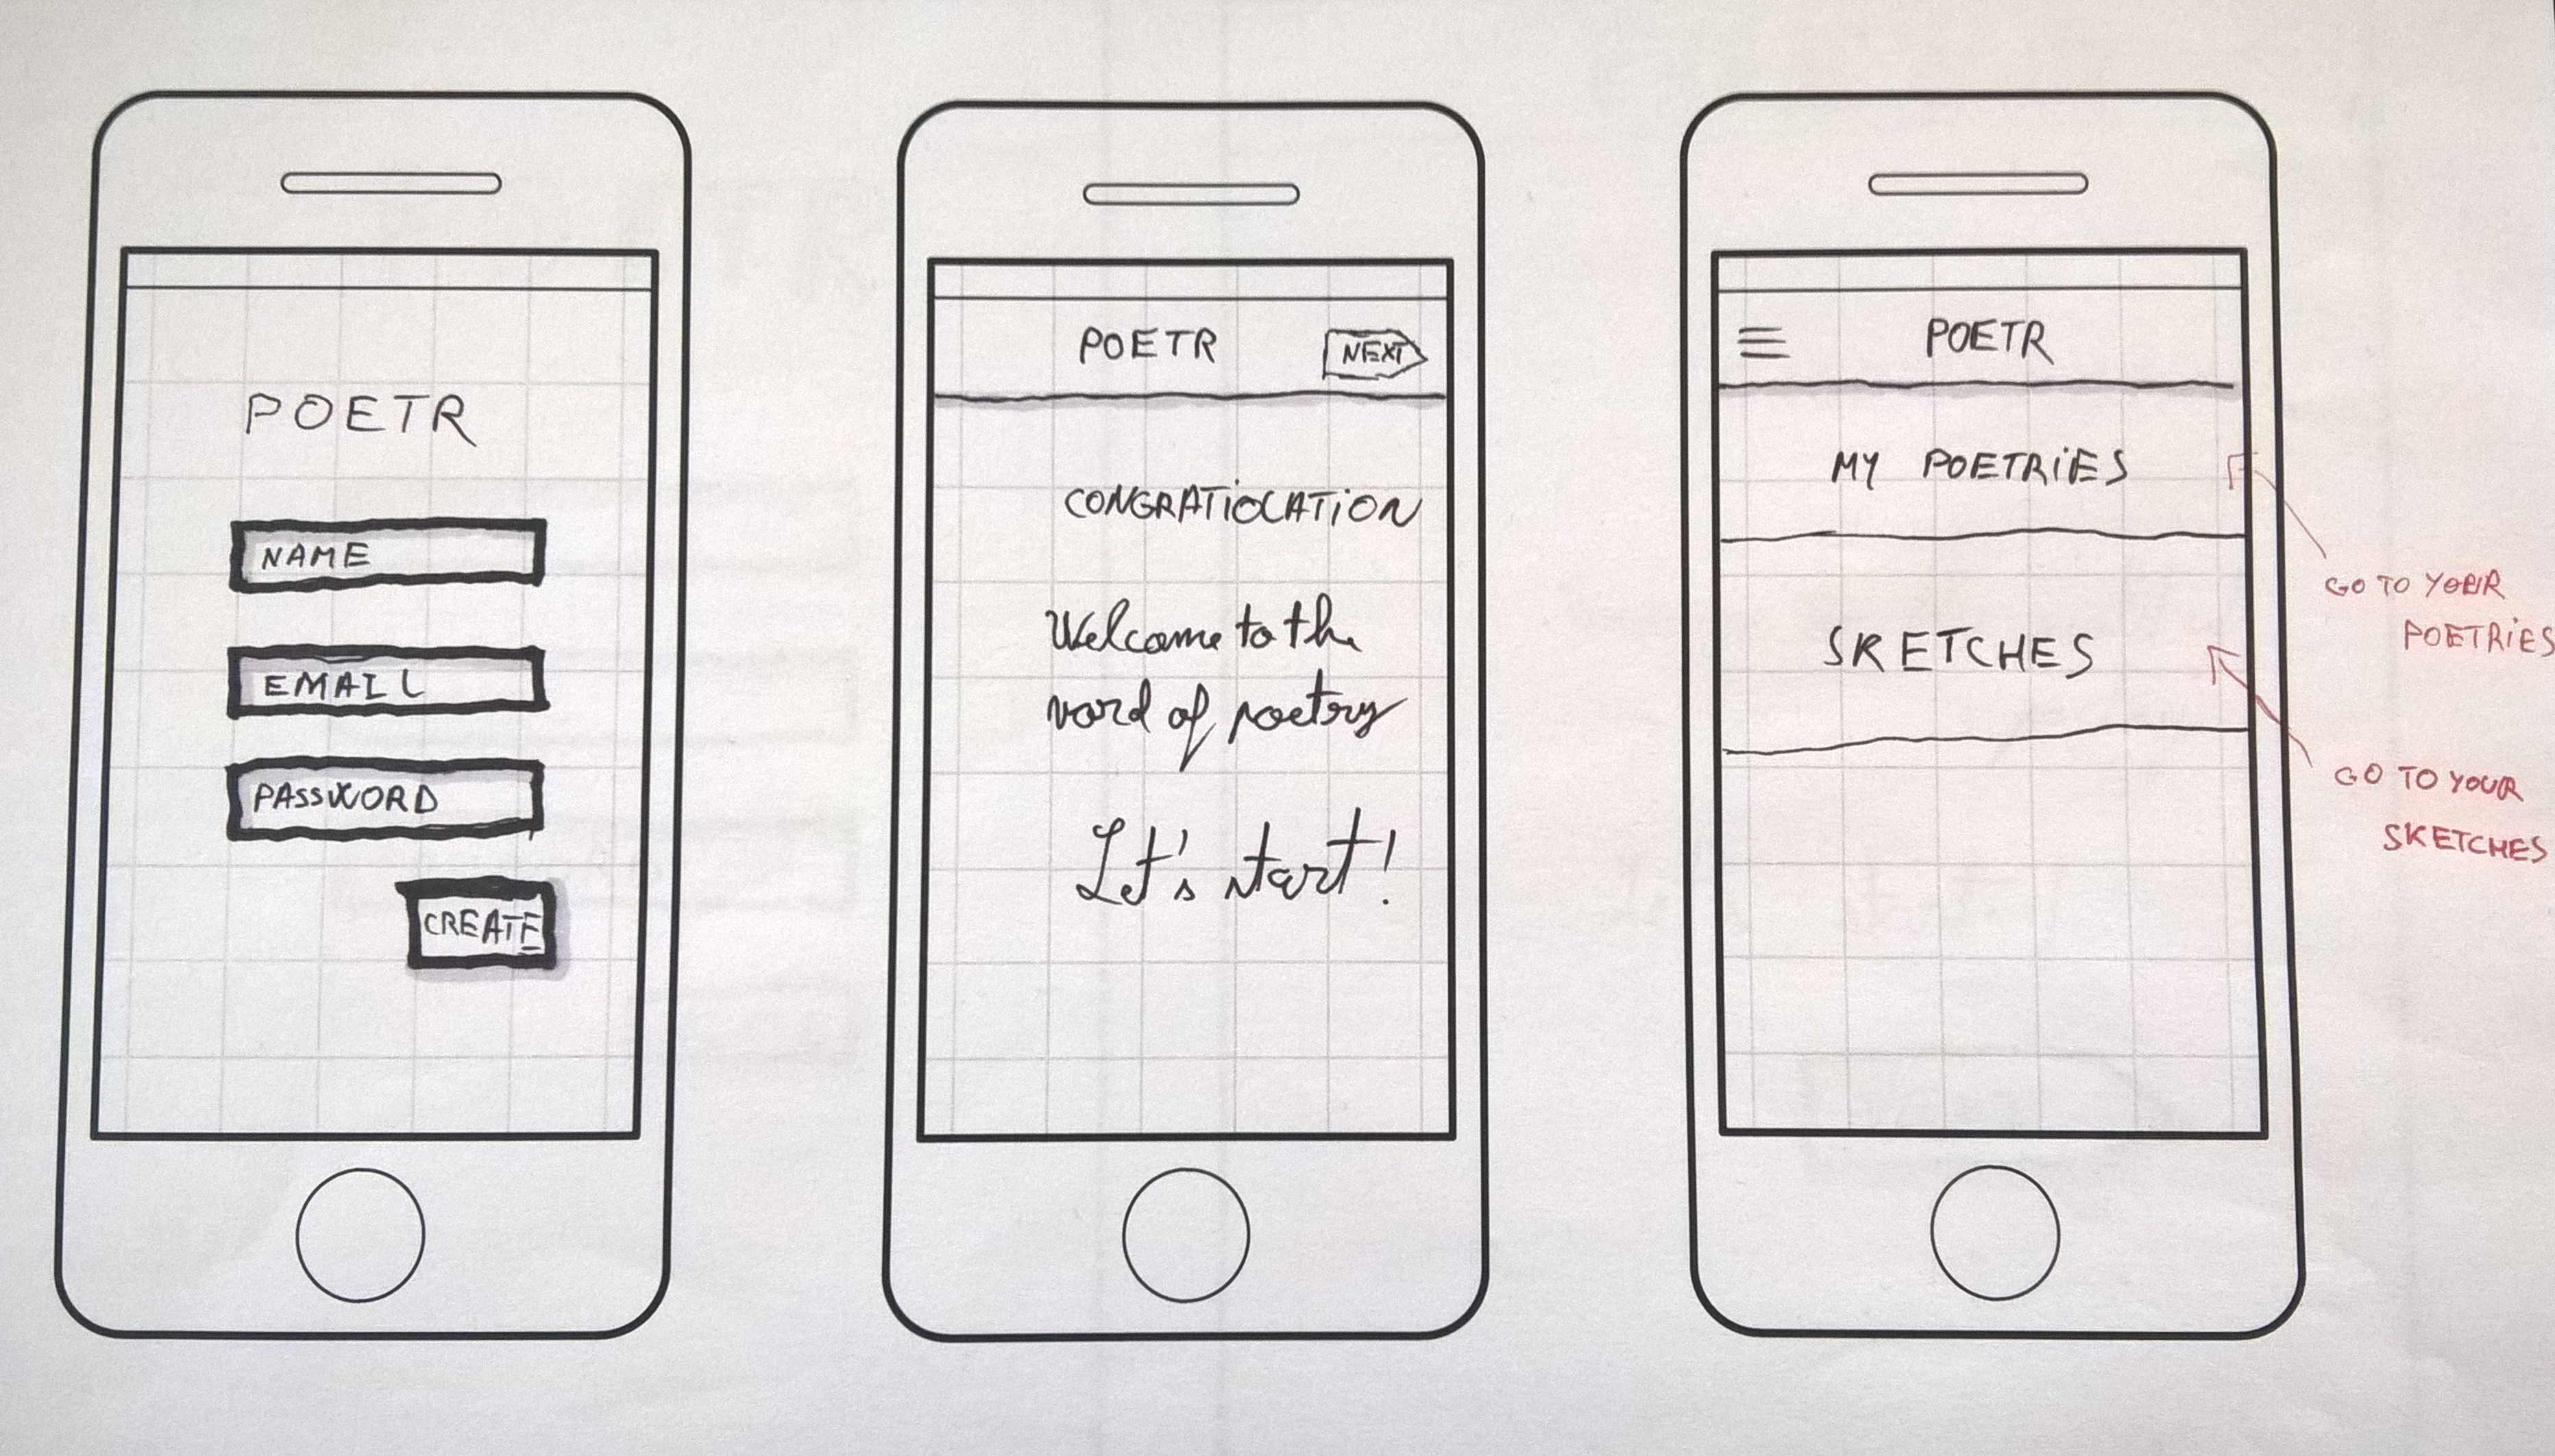 POETR
NAME
EMAIL
PASSWORD
CREATE
POETR
NEXT
CONGRATIOCATION
Welcome to the
word of poetry
Let's start!
POETR
MY POETRIES
SKETCHES
GO TO YOUR
POETRIES
GO TO YOUR
SKETCHES